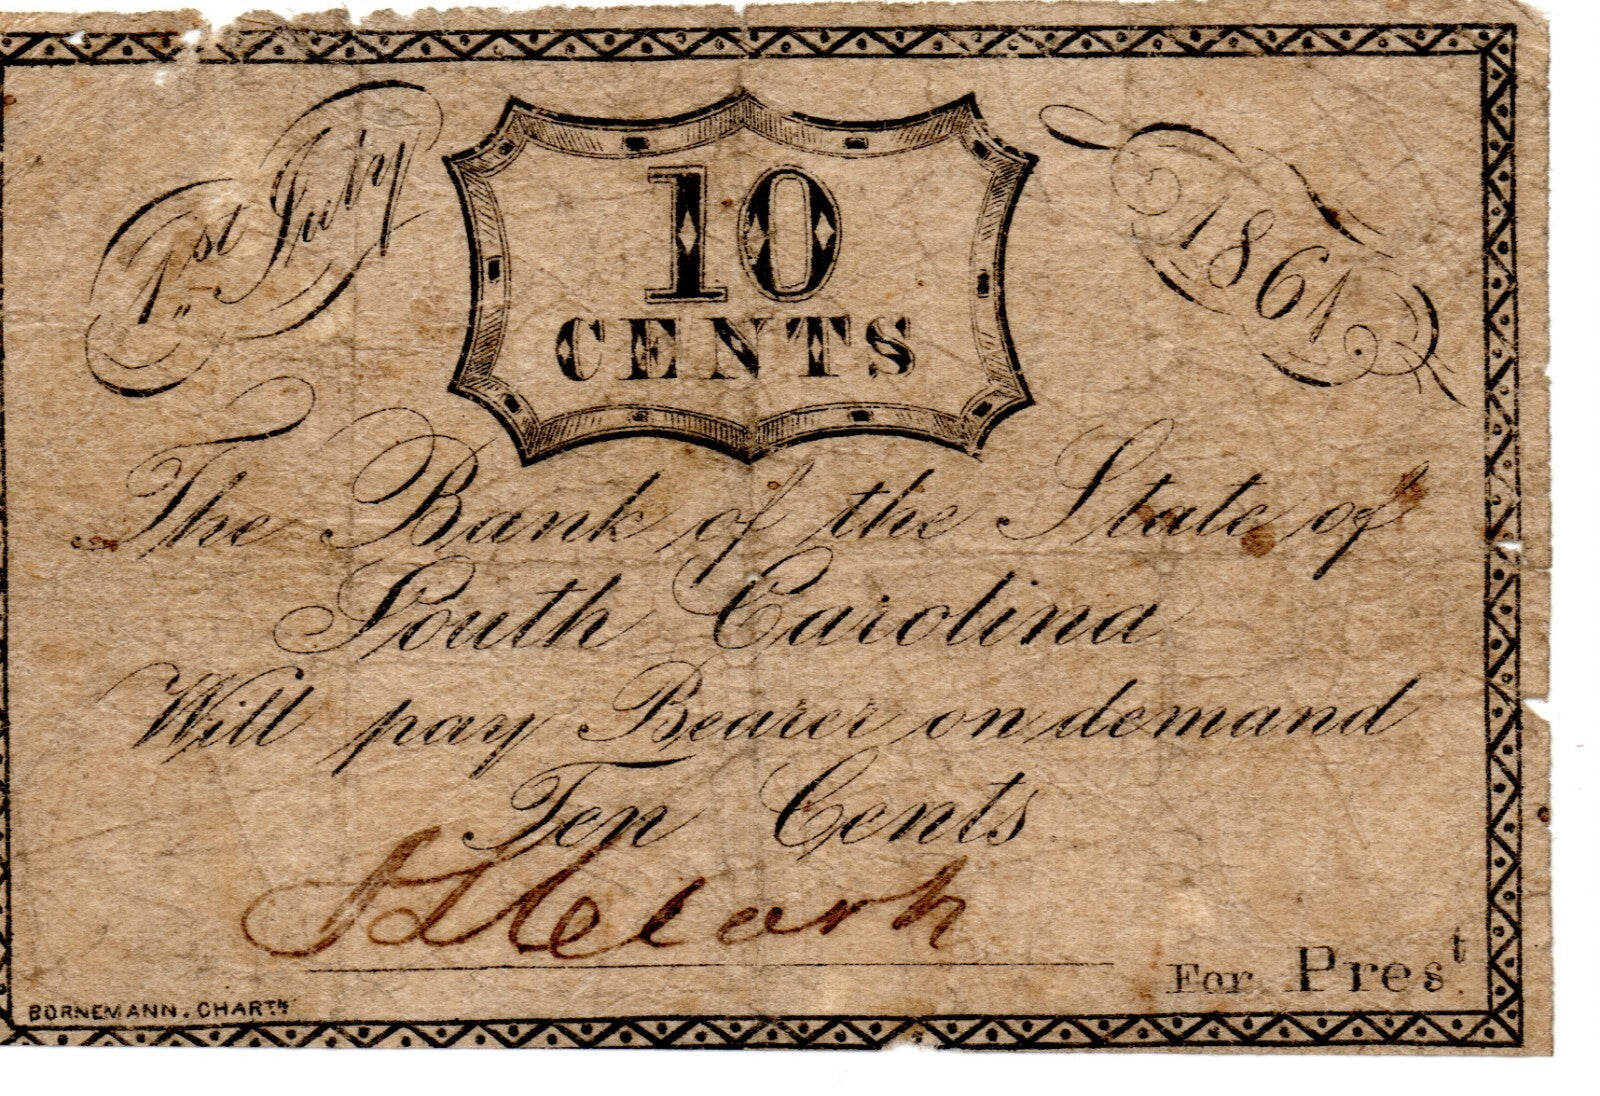 1st July
10
CENTS
1861
The Bank of the State of
South Carolina
Will pay Bearer on demand
Ten Cents
Clark
For Prest.
BORNEMANN. CHARTN